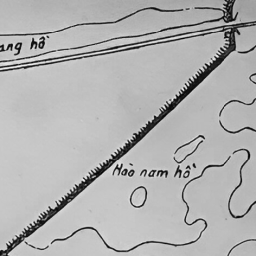 ang hồ
Hào nam hồ